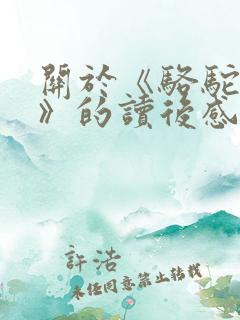 關於《駱駝
》的讀後感
許浩
未經同意禁止轉載